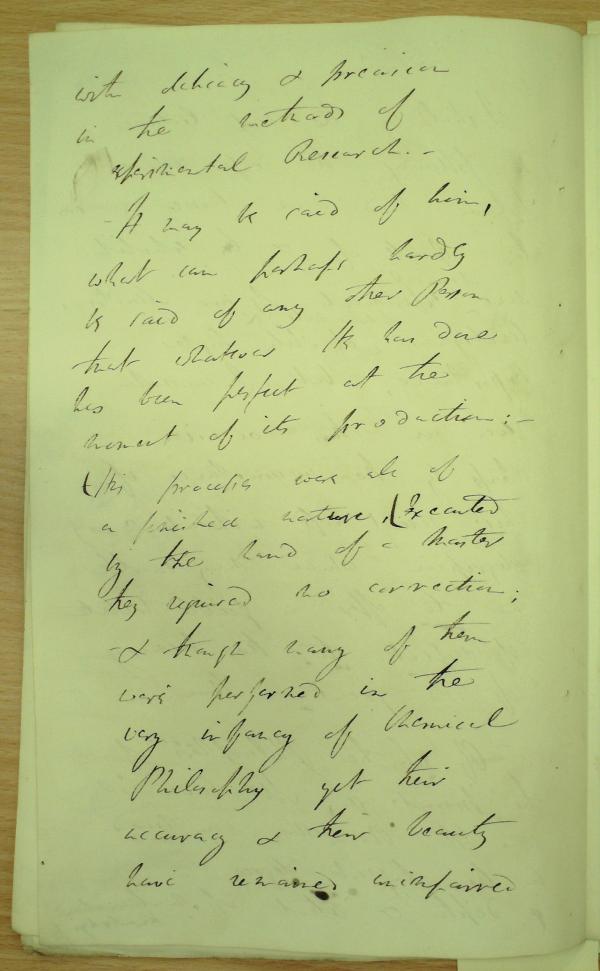 with delicacy & precision
in the methods of
experimental Research. -
- It may be said of him,
what can perhaps hardly
be said of any other Person
that whatever He has done
has been perfect at the
moment of its production: -
(His processes were all of
a finished nature, (Executed
by the hand of a Master
they required no correction;
- & though many of them
were performed in the
very infancy of Chemical
Philosophy yet their
accuracy & their beauty
have remained unimpaired